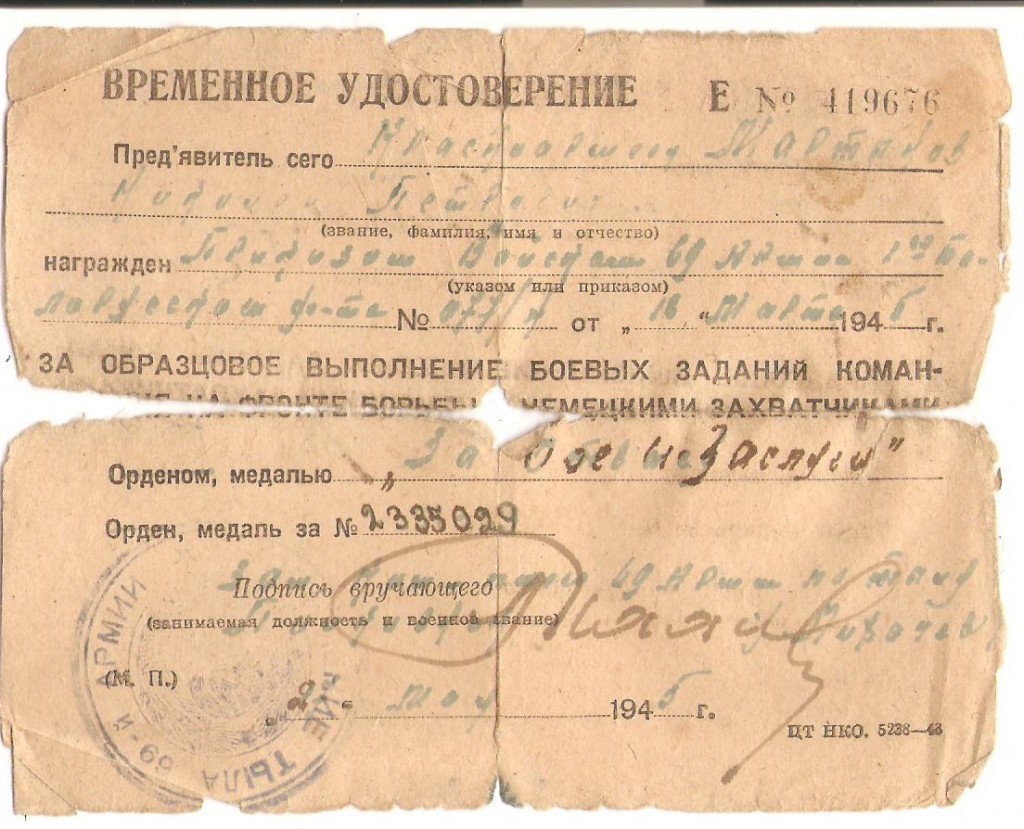 ВРЕМЕННОЕ УДОСТОВЕРЕНИЕ Е № 419676
Пред'явитель сего Красноармеец
Петрович
(звание, фамилия, имя и отчество)
награжден Приказом Войскам 69 Армии 1го Бе-
лорусского ф-та № 077/н от „ 18 “ Марта 1945 г.
(указом или приказом)
ЗА ОБРАЗЦОВОЕ ВЫПОЛНЕНИЕ БОЕВЫХ ЗАДАНИЙ КОМАН-
НА ФРОНТЕ БОРЬБЫ НЕМЕЦКИМИ ЗАХВАТЧИКАМИ
Орденом, медалью „За Боевые Заслуги"
Орден, медаль за № 2335029
Зам. 69 Армии по тылу
Подпись вручающего
(занимаемая должность и военное звание)
(М. П.)
Мая 1945 г.
ЦТ НКО. 5238—43
69-й АРМИИ
ТЫЛА